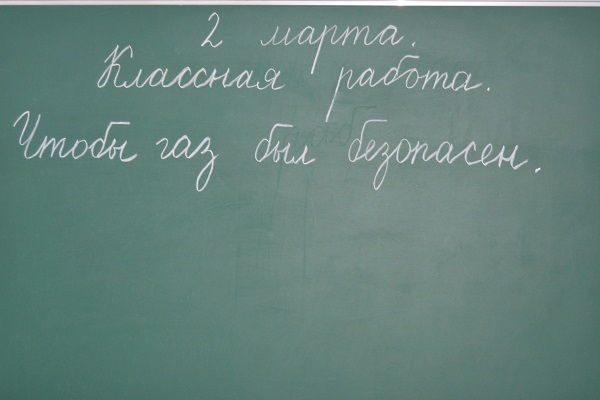 2 марта.
Классная работа.
Чтобы газ был безопасен.